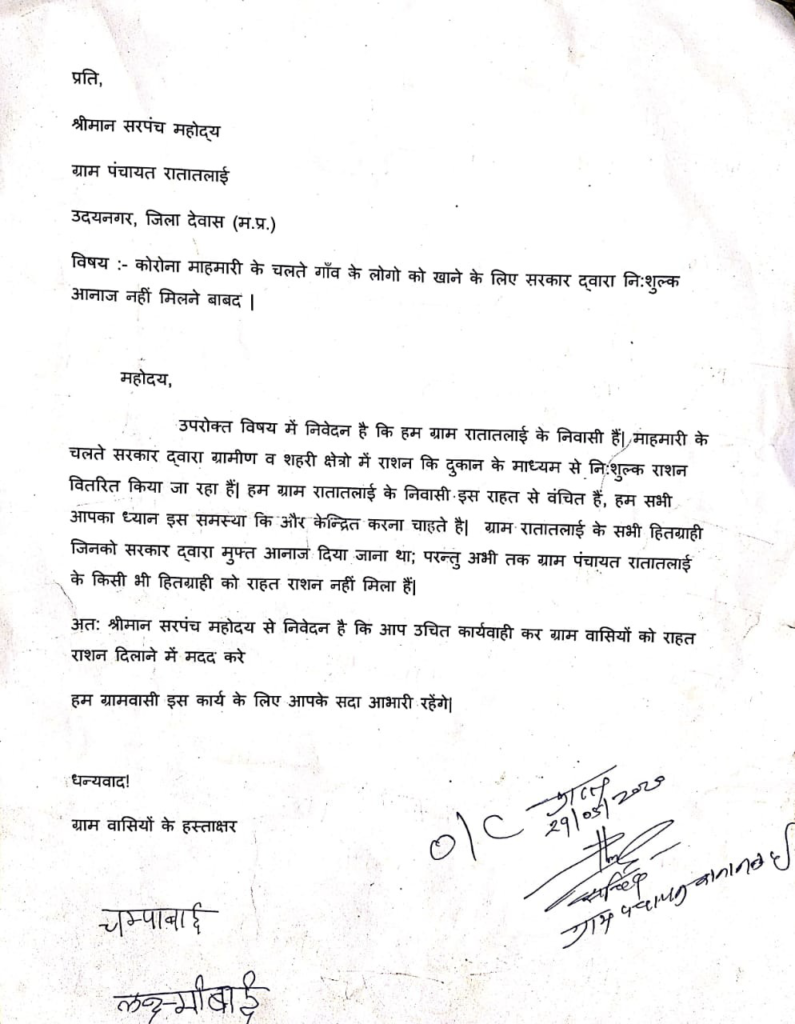 प्रति,
श्रीमान सरपंच महोद्य
ग्राम पंचायत रातातलाई
उदयनगर, जिला देवास (म.प्र.)
विषय :- कोरोना माहमारी के चलते गाँव के लोगो को खाने के लिए सरकार द्वारा नि:शुल्क
आनाज नहीं मिलने बाबद |
महोदय,
उपरोक्त विषय में निवेदन है कि हम ग्राम रातातलाई के निवासी हैं| माहमारी के
चलते सरकार द्वारा ग्रामीण व शहरी क्षेत्रो में राशन कि दुकान के माध्यम से नि:शुल्क राशन
वितरित किया जा रहा हैं| हम ग्राम रातातलाई के निवासी इस राहत से वंचित हैं, हम सभी
आपका ध्यान इस समस्या कि और केन्द्रित करना चाहते है| ग्राम रातातलाई के सभी हितग्राही
जिनको सरकार द्वारा मुफ्त आनाज दिया जाना था; परन्तु अभी तक ग्राम पंचायत रातातलाई
के किसी भी हितग्राही को राहत राशन नहीं मिला हैं|
अत: श्रीमान सरपंच महोदय से निवेदन है कि आप उचित कार्यवाही कर ग्राम वासियों को राहत
राशन दिलाने में मदद करे
हम ग्रामवासी इस कार्य के लिए आपके सदा आभारी रहेंगे|
धन्यवाद!
ग्राम वासियों के हस्ताक्षर
O/C
29/05/2020
सचिव
ग्राम पंचायत
चम्पाबाई
लक्ष्मीबाई